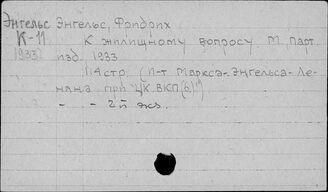 Энгельс Энгельс, Фридрих
К-11 К жилищному вопросу М. Парт.
1933 изд. 1933
114 стр. (И-т Маркса-Энгельса-Ле-
нина при ЦК ВКП(б))
- - 2й экз.